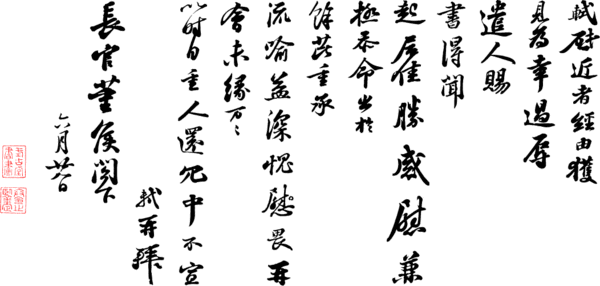 軾啟近者經由獲
見為幸過辱
遣人賜
書得聞
起居佳勝感慰兼
極忝命出於
餘芘重承
流喻益深愧慰畏再
會未緣万々
以時自重人還冗中不宣
軾再拜
長官董侯閣下
六月廿八日